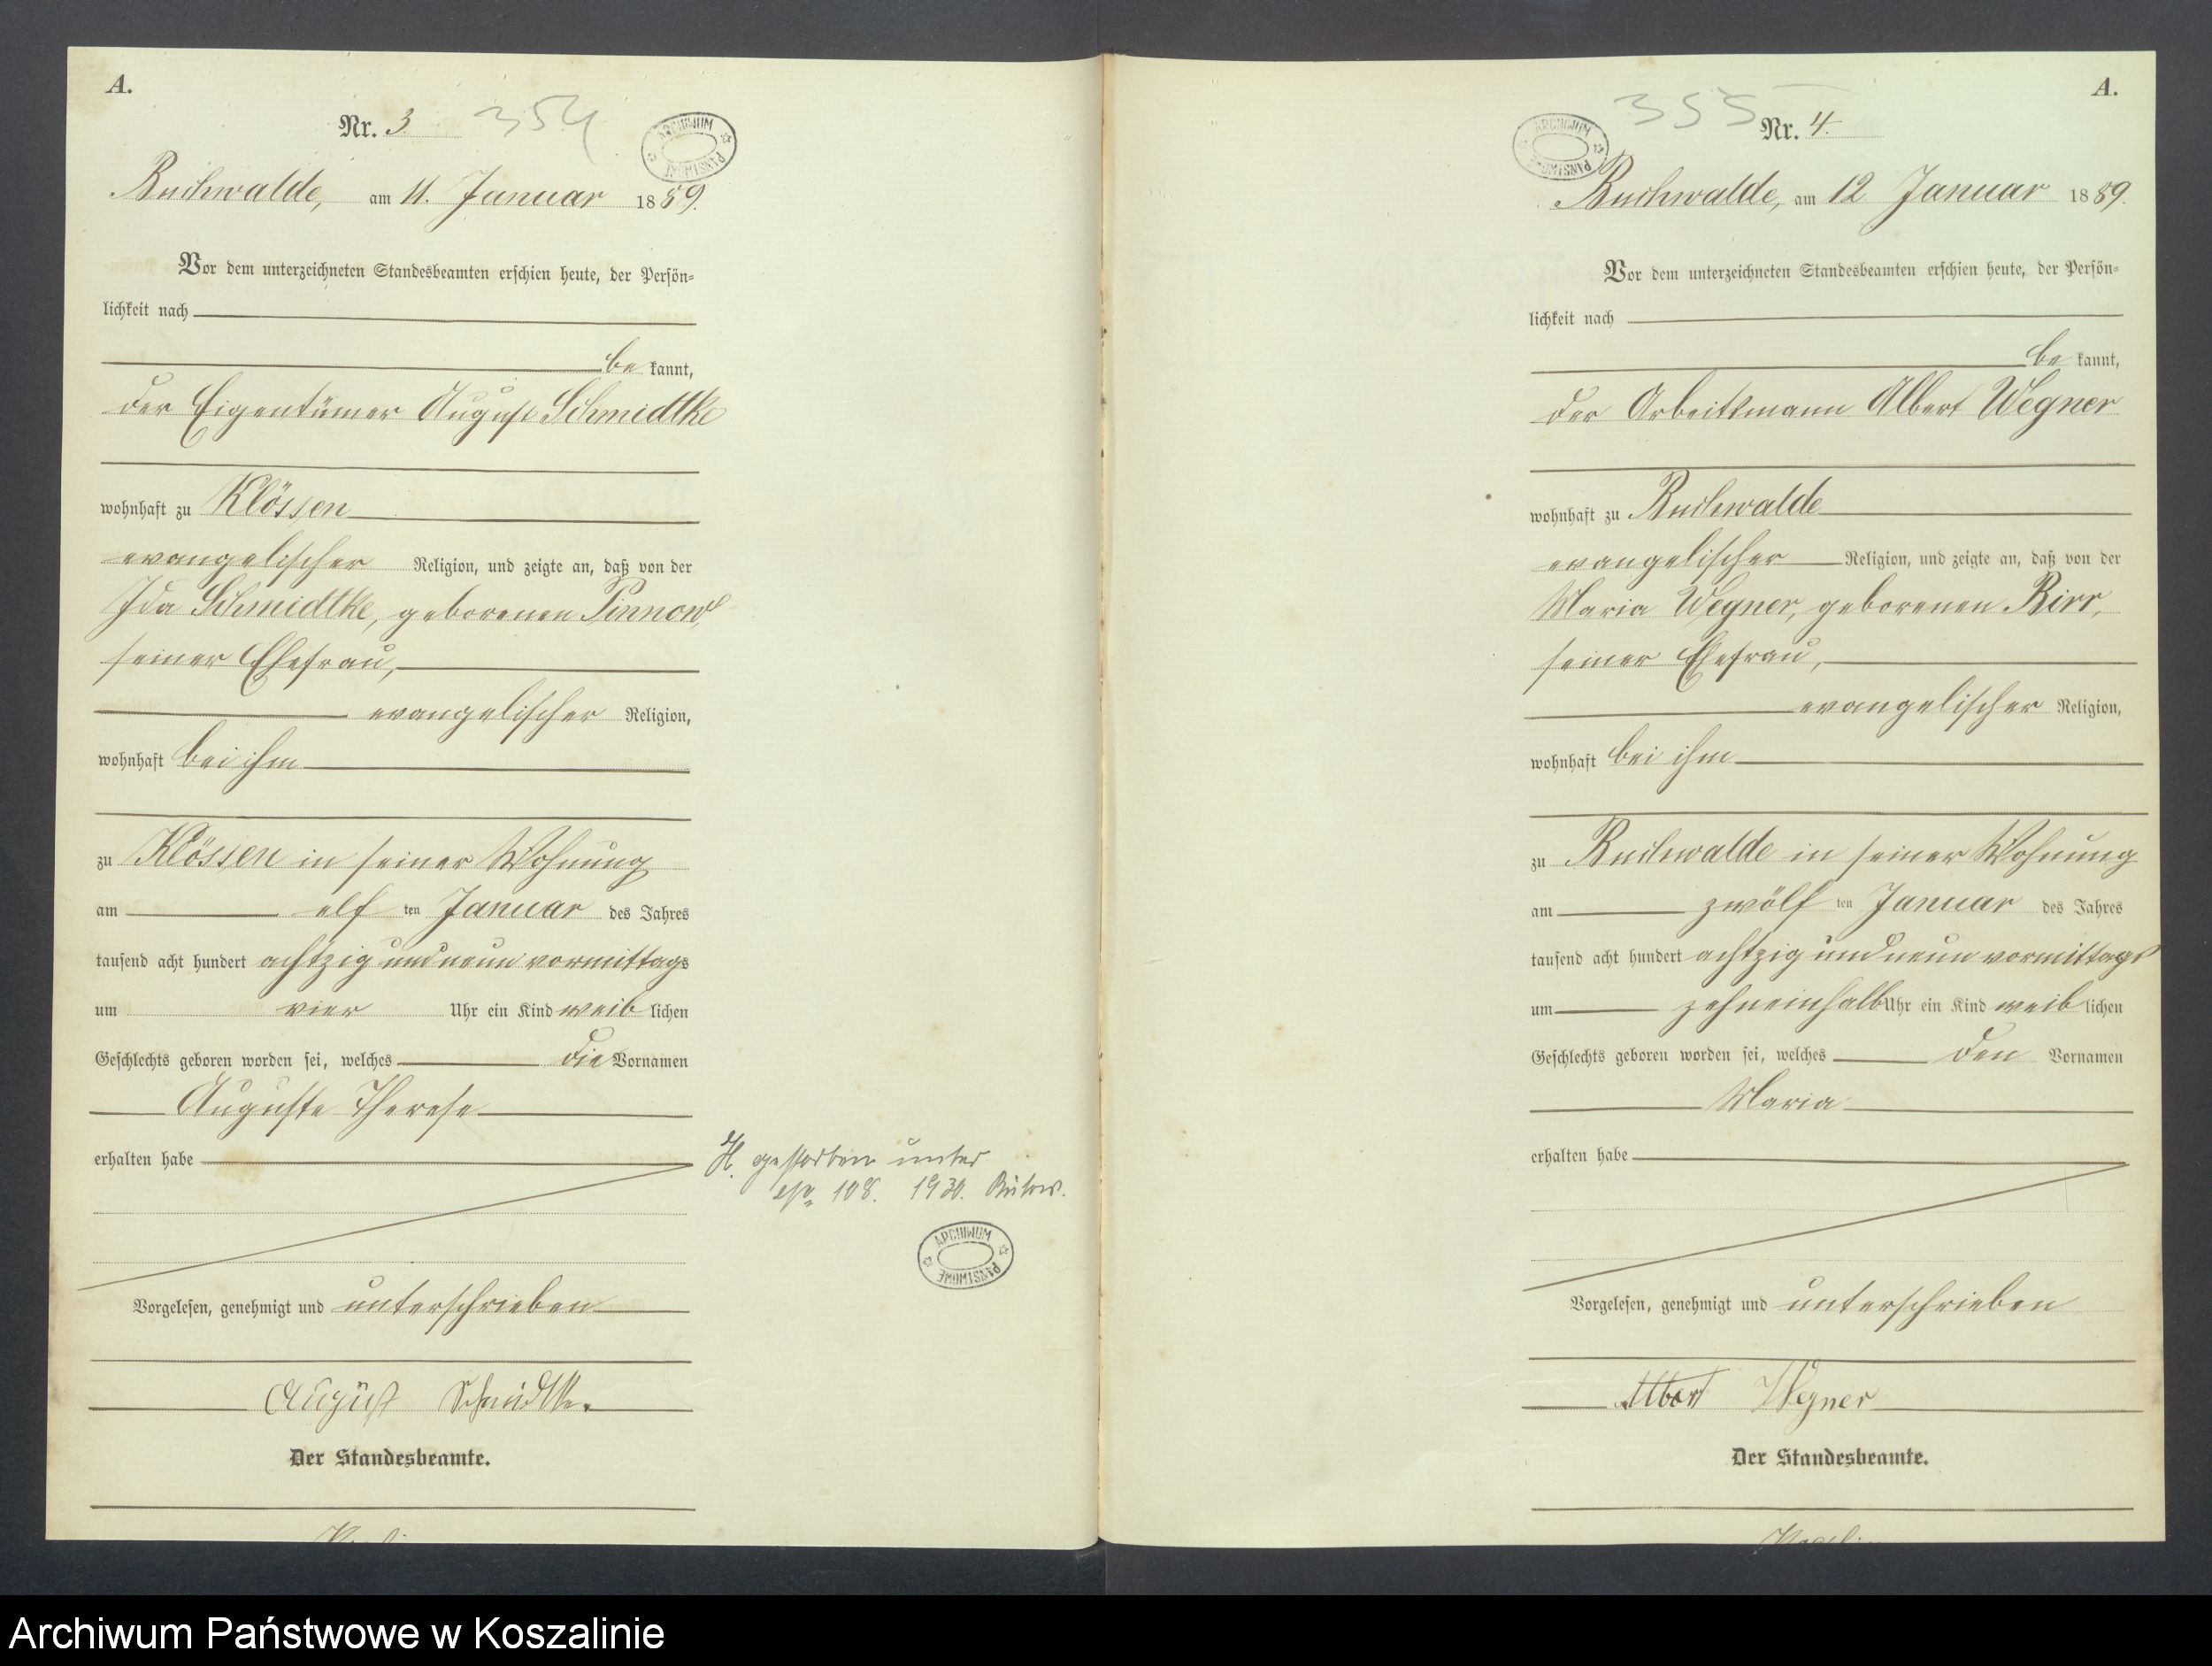 A.
Nr. 3
354
ARCHIWUM PAŃSTWOWE
Buchwalde, am 11. Januar 1889.
Vor dem unterzeichneten Standesbeamten erschien heute, der Persön=
lichkeit nach
be kannt,
der Eigentümer August Schmidtke
wohnhaft zu Klössen
evangelischer Religion, und zeigte an, daß von der
Ida Schmidtke, geborenen Pinnow,
seiner Ehefrau,
evangelischer Religion,
wohnhaft bei ihm
zu Klössen in seiner Wohnung
am elf ten Januar des Jahres
tausend acht hundert achtzig und neun vormittags
um vier Uhr ein Kind weib lichen
Geschlechts geboren worden sei, welches die Vornamen
Auguste Therese
erhalten habe
H. gestorben unter
108. 1930. Bütow.
ARCHIWUM PAŃSTWOWE
Vorgelesen, genehmigt und unterschrieben
August Schmidtke.
Der Standesbeamte.
A.
355
Nr. 4.
ARCHIWUM PAŃSTWOWE
Buchwalde, am 12 Januar 1889.
Vor dem unterzeichneten Standesbeamten erschien heute, der Persön=
lichkeit nach
be kannt,
der Arbeitsmann Albert Wegner
wohnhaft zu Buchwalde
evangelischer Religion, und zeigte an, daß von der
Maria Wegner, geborenen Birr,
seiner Ehefrau,
evangelischer Religion,
wohnhaft bei ihm
zu Buchwalde in seiner Wohnung
am zwölf ten Januar des Jahres
tausend acht hundert achtzig und neun vormittags
um zehneinhalb Uhr ein Kind weib lichen
Geschlechts geboren worden sei, welches den Vornamen
Maria
erhalten habe
Vorgelesen, genehmigt und unterschrieben
Albert Wegner
Der Standesbeamte.
Archiwum Państwowe w Koszalinie